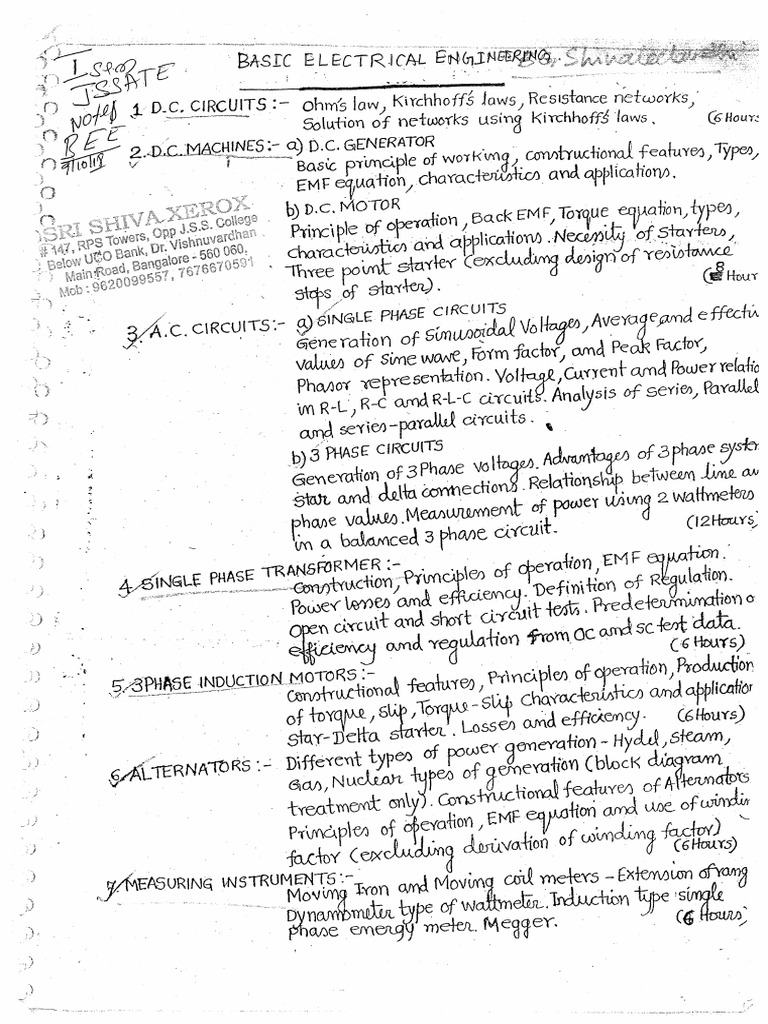 BASIC ELECTRICAL ENGINEERING.
I Sem
JSSATE
Notes
BEE
9/10/19
1 D.C. CIRCUITS :- Ohm's law, Kirchhoff's laws, Resistance networks,
Solution of networks using Kirchhoff's laws. (6 Hours
2. D.C. MACHINES:- a) D.C. GENERATOR
Basic principle of working, constructional features, Types,
EMF equation, characteristics and applications.
SRI SHIVA XEROX
# 147, RPS Towers, Opp J.S.S. College
Below UCO Bank, Dr. Vishnuvardhan
Main Road, Bangalore - 560 060,
Mob : 9620099557, 7676670591
b) D.C. MOTOR
Principle of operation, Back EMF, Torque equation, types,
Characteristics and applications. Necessity of starters,
Three point starter (excluding design of resistance
steps of starter). (8 Hour
3. A.C. CIRCUITS:- a) SINGLE PHASE CIRCUITS
Generation of Sinusoidal Voltages, Average and effecti
values of sine wave, Form factor, and Peak Factor,
Phasor representation. Voltage, Current and Power relatio
in R-L, R-C and R-L-C circuits. Analysis of series, Parallel
and series-parallel circuits.
b) 3 PHASE CIRCUITS
Generation of 3 Phase voltages. Advantages of 3 phase system
star and delta connections. Relationship between line an
phase values. Measurement of power using 2 wattmeters
in a balanced 3 phase circuit. (12 Hours)
4. SINGLE PHASE TRANSFORMER :-
Construction, Principles of operation, EMF equation.
Power losses and efficiency. Definition of Regulation.
Open circuit and short circuit tests. Predetermination o
efficiency and regulation from OC and SC test data.
(6 Hours)
5. 3PHASE INDUCTION MOTORS :-
Constructional features, Principles of operation, Production
of torque, slip, Torque-slip characteristics and application
Star-Delta starter. Losses and efficiency. (6 Hours)
6. ALTERNATORS :- Different types of power generation - Hydel, steam,
Gas, Nuclear types of generation (block diagram
treatment only). Constructional features of Alternators
Principles of operation, EMF equation and use of windin
factor (excluding derivation of winding factor)
(6 Hours)
7. MEASURING INSTRUMENTS :-
Moving Iron and Moving coil meters - Extension of rang
Dynamometer type of wattmeter. Induction type single
phase energy meter. Megger. (6 Hours)